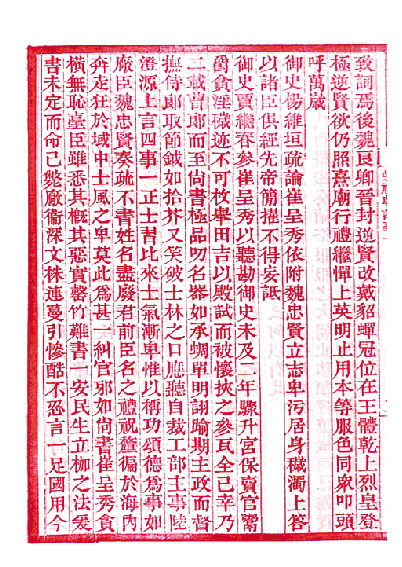 致詞焉後魏良卿晉封逆賢改戴貂蟬冠位在王體乾上烈皇登
極逆賢欲仍照熹廟行禮繼憚上英明止用本等服色同衆叩頭
呼萬歲
御史楊維垣疏論崔呈秀依附魏忠賢立志卑污居身穢濁上答
以諸臣俱經先帝簡擢不得妄詆
御史賈繼春參崔呈秀以聽勘御史未及二年驟升宮保賣官鬻
爵貪淫穢迹不可枚舉田吉以殿試而被懷挾之參瓦全已幸乃
二載曹郎而至尚書極品叨名器如承蜩單明詡瑜期主政而督
撫侍郎取節鉞如拾芥又笑破士林之口應聽自裁工部主事陸
澄源上言四事一正士習比來士氣漸卑惟以稱功頌德爲事如
厰臣魏忠賢奏疏不書姓名盡廢君前臣名之禮祝釐徧於海內
奔走狂於域中士風之卑莫此爲甚一糾官邪如尚書崔呈秀貪
橫無恥臺臣雖悉其概其惡實罄竹難書一安民生立枷之法爰
書未定而命已斃厰衞深文株連蔓引慘酷不忍言一足國用今